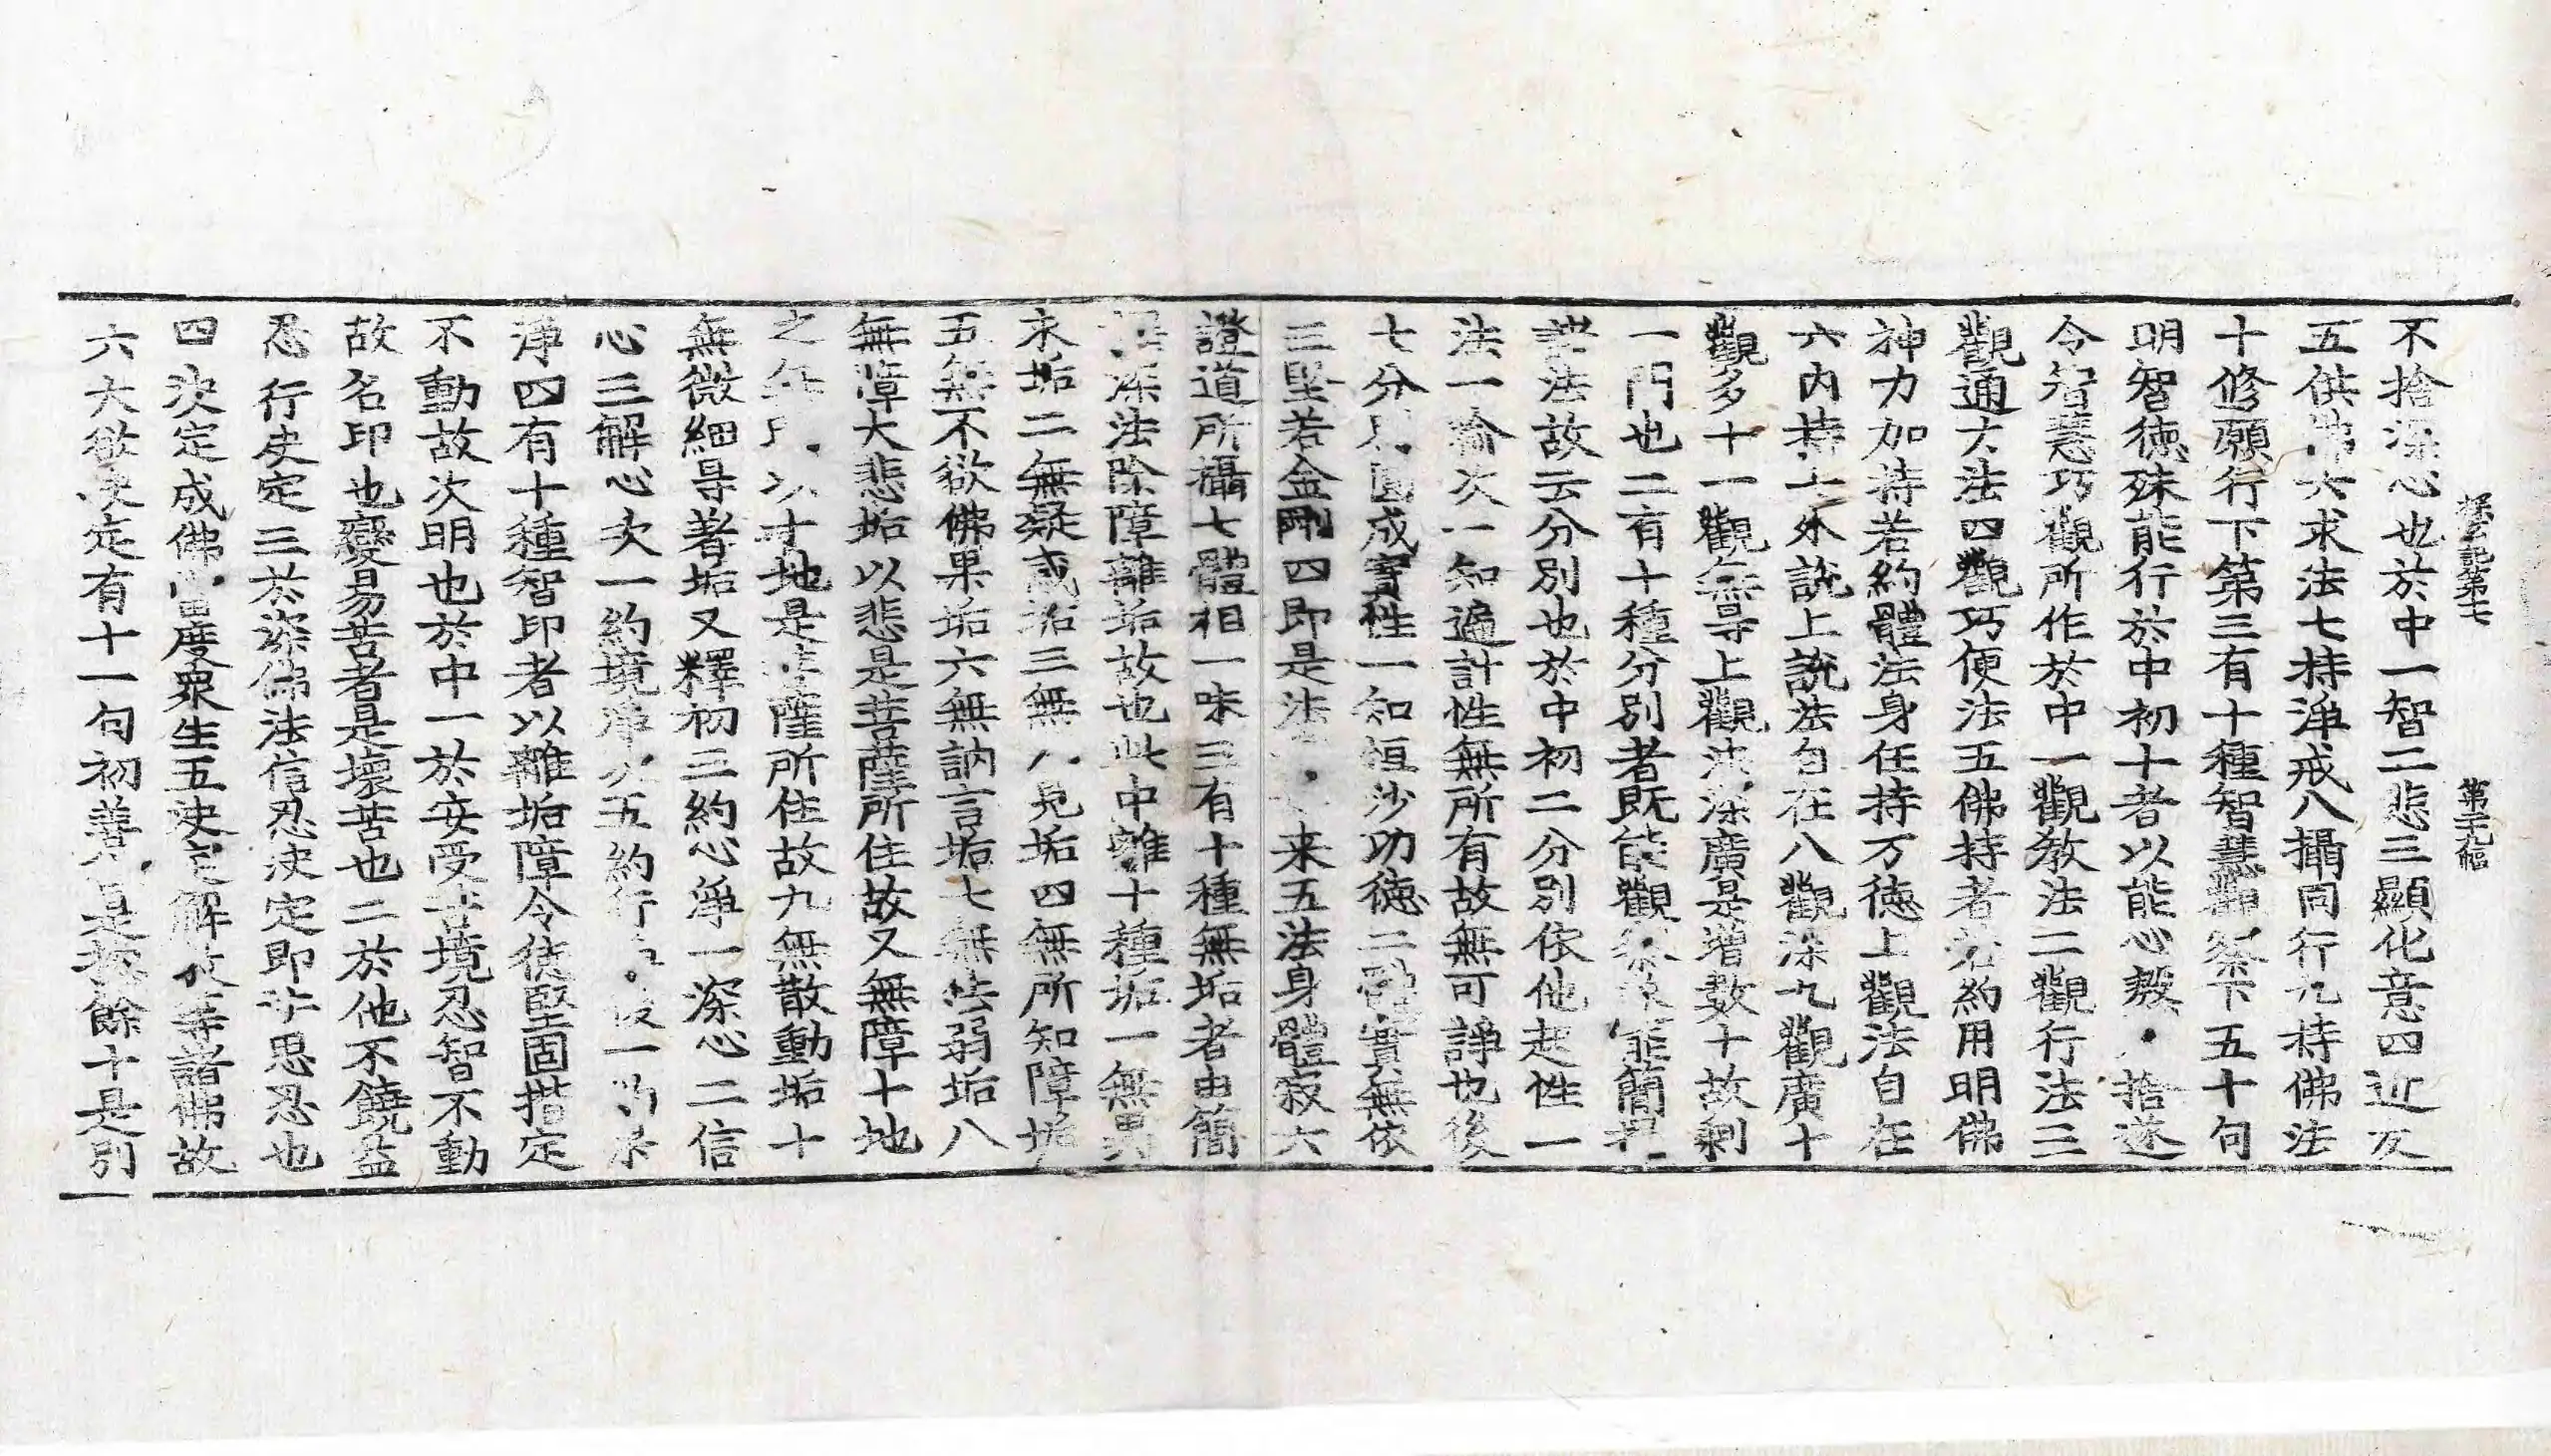 探玄記第七
第二九幅
不捨深心也於中一智二悲三顯化意四近友
五供佛六求法七持淨戒八攝同行九持佛法
十修願行下第三有十種智慧觀察下五十句
明智德殊能行於中初十者以能心數捨遂
令智慧巧觀所作於中一觀教法二觀行法三
觀通大法四觀巧便法五佛持者若約用明佛
神力加持若約體法身任持万德上觀法自在
六內持上外說上說法自在八觀深九觀廣十
觀多十一觀無㝵上觀法深廣是增數十故剩
一門也二有十種分別者既能觀察能簡擇
諸法故云分別也於中初二分別依他起性一
法一喻次一知遍計性無所有故無可諍也後
七分別圓成實性一知恒沙功德二體實無依
三堅若金剛四即是法来五法身體寂六
證道所攝七體相一味三有十種無垢者由簡
深法除障離垢故也此中離十種垢一無異
求垢二無疑惑垢三無見垢四無所知障垢
五無不欲佛果垢六無訥言垢七無怯弱垢八
無障大悲垢以悲是菩薩所住故又無障十地
之以十地是菩薩所住故九無散動垢十
無微細㝵著垢又釋初三約心淨一深心二信
心三解心次一約境淨次五約行後一
淨四有十種智印者以離垢障令使堅固揩定
不動故次明也於中一於安受苦境忍智不動
故名印也變易苦者是壞苦也二於他不饒益
忍行决定三於深佛法信忍决定即諦思忍也
四决定成佛當度衆生五决定解故等諸佛故
六大欲决定有十一句初善是惣餘十是別